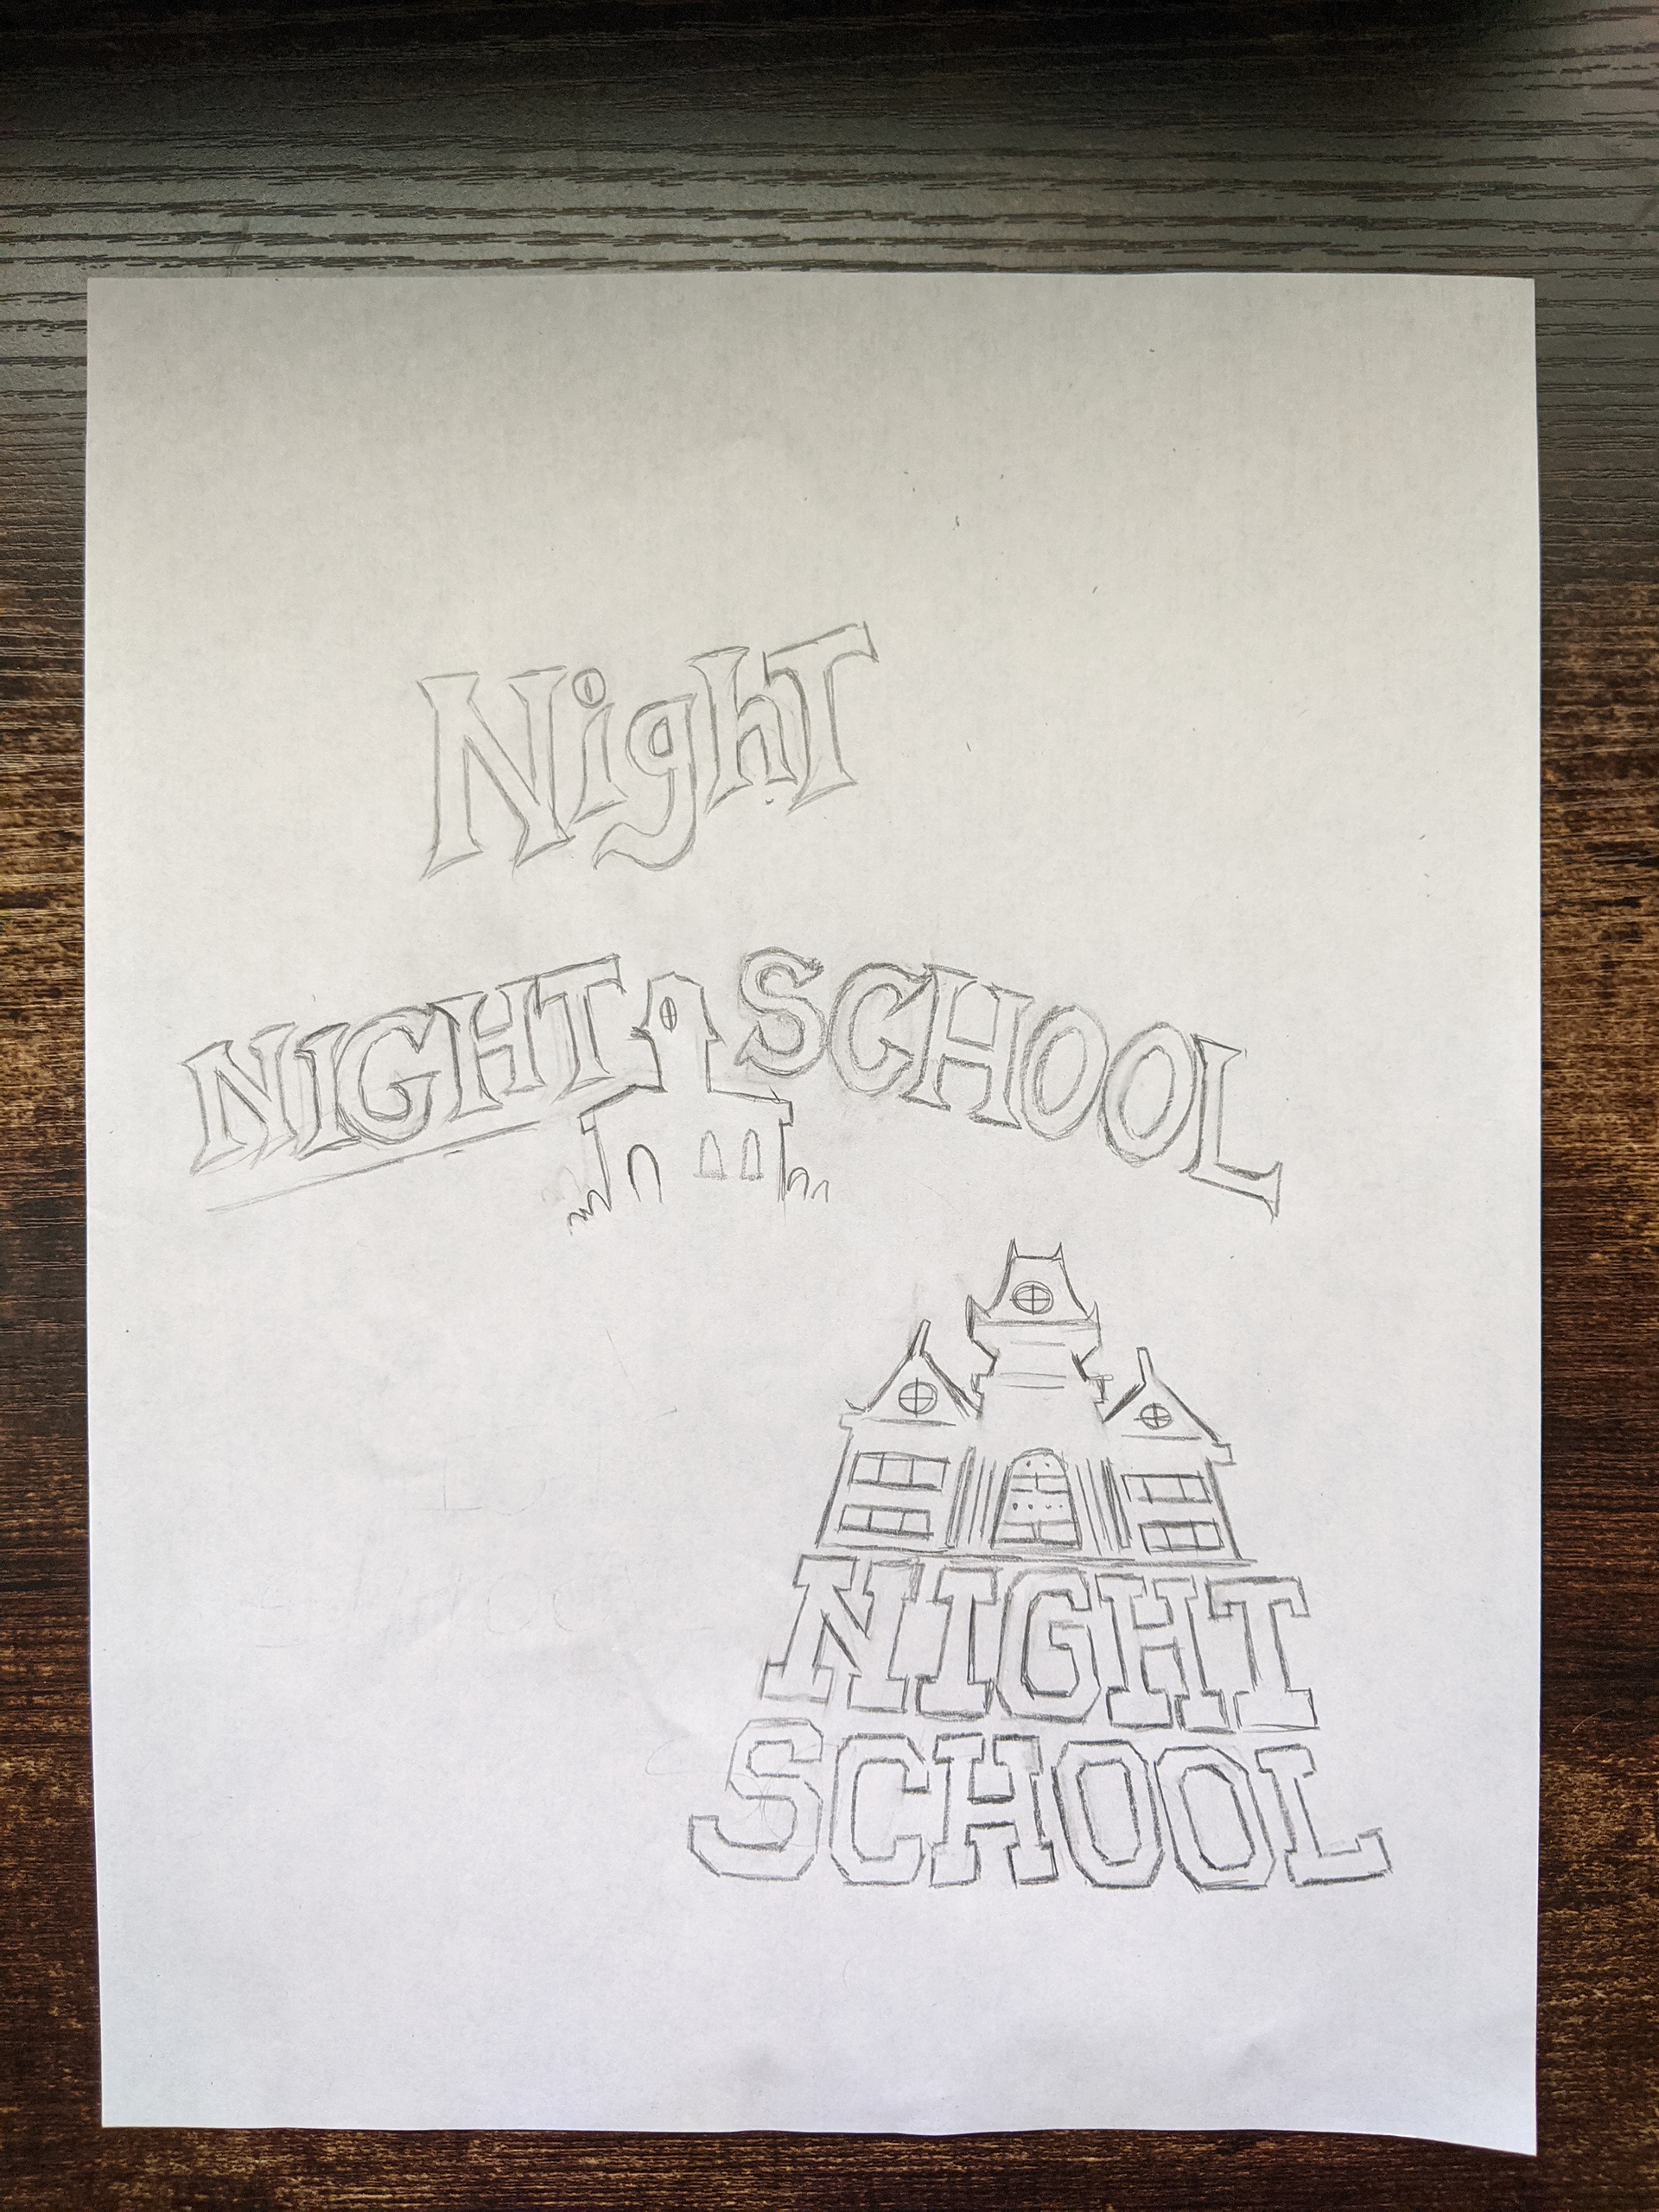 Night
NIGHT SCHOOL
NIGHT
SCHOOL